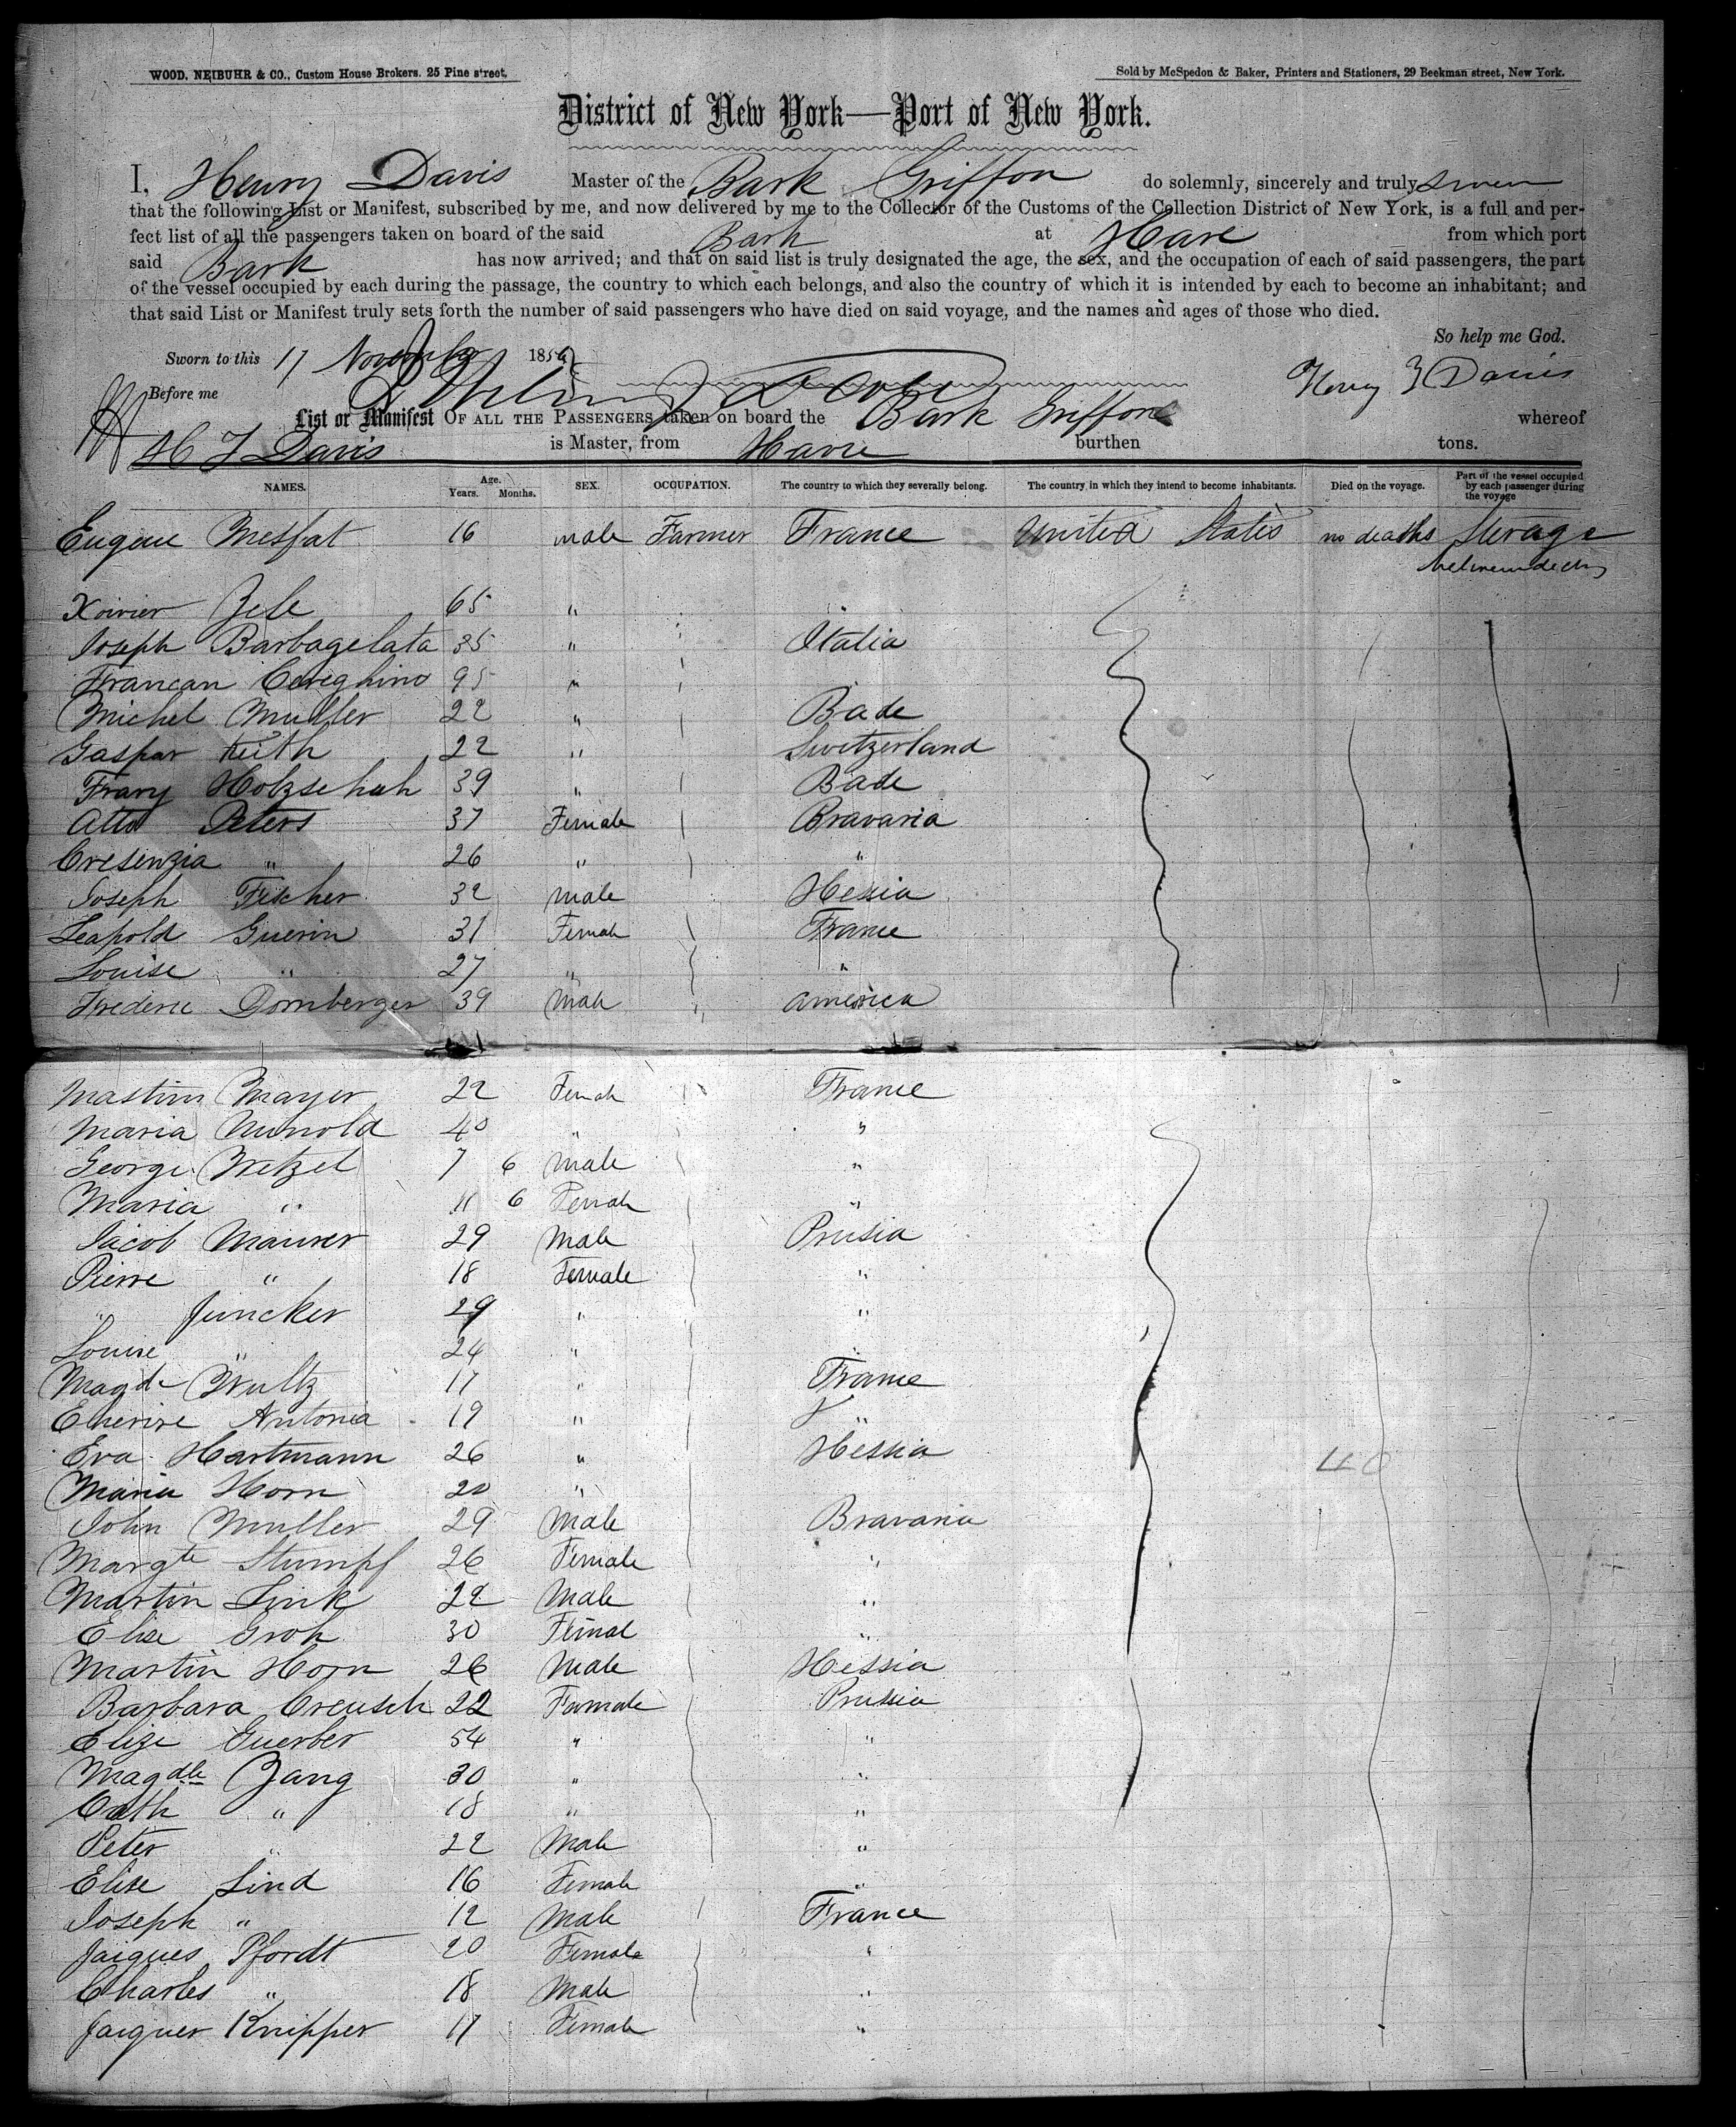 WOOD, NEIBUHR & CO., Custom House Brokers. 25 Pine street. Sold by McSpedon & Baker, Printers and Stationers, 29 Beekman street, New York.
District of New York—Port of New York.
I, Henry Davis Master of the Bark Griffon do solemnly, sincerely and truly swear
that the following List or Manifest, subscribed by me, and now delivered by me to the Collector of the Customs of the Collection District of New York, is a full and per-
fect list of all the passengers taken on board of the said Bark at Havre from which port
said Bark has now arrived; and that on said list is truly designated the age, the sex, and the occupation of each of said passengers, the part
of the vessel occupied by each during the passage, the country to which each belongs, and also the country of which it is intended by each to become an inhabitant; and
that said List or Manifest truly sets forth the number of said passengers who have died on said voyage, and the names and ages of those who died.
So help me God.
Sworn to this 17 November 185
Before me Henry J Davis
List or Manifest OF ALL THE PASSENGERS taken on board the Bark Griffon whereof
H J Davis is Master, from Havre burthen tons.
NAMES. Age. Years. Months. SEX. OCCUPATION. The country to which they severally belong. The country in which they intend to become inhabitants. Died on the voyage. Part of the vessel occupied by each passenger during the voyage
Eugene Mesfat 16 male Farmer France United States no deaths Sterage
between decks
Xavier Zele 65 "
Joseph Barbagelata 35 " Italia
Francan Cereghino 95 "
Michel Muller 22 " Bade
Gaspar Keith 22 " Switzerland
Frany Holzschuh 39 " Bade
Atto Peters 37 Female Bravaria
Cresenzia " 26 " "
Joseph Fischer 32 male Hessia
Leapold Guerin 31 Female France
Louise " 27 " "
Frederic Dornberger 39 Male america
Mastin Mayer 22 Female France
Maria Nunold 40 " "
George Wetzel 7 6 Male "
Maria " 11 6 Female "
Jacob Maurer 29 Male Prusia
Pierre " 18 Female "
" Juncker 29 " "
Louise " 24 "
Magde Wultz 17 " France
Eherire Antonia 19 " "
Eva Hartmann 26 " Hessia
Maria Horn 20 "
John Muller 29 Male Bravaria
Margte Stumpf 26 Female "
Martin Link 22 Male "
Elise Groh 30 Femal "
Martin Horn 26 Male Hessia
Barbara Creusch 22 Famale Prussia
Elize Guerber 54 " "
Magdle Zang 30 " "
Cath " 18 " "
Peter " 22 Male "
Elise Lind 16 Female "
Joseph " 12 Male France
Jaiques Pfordt 20 Female "
Charles " 18 Male "
Jaiques Knipper 17 Female "
40